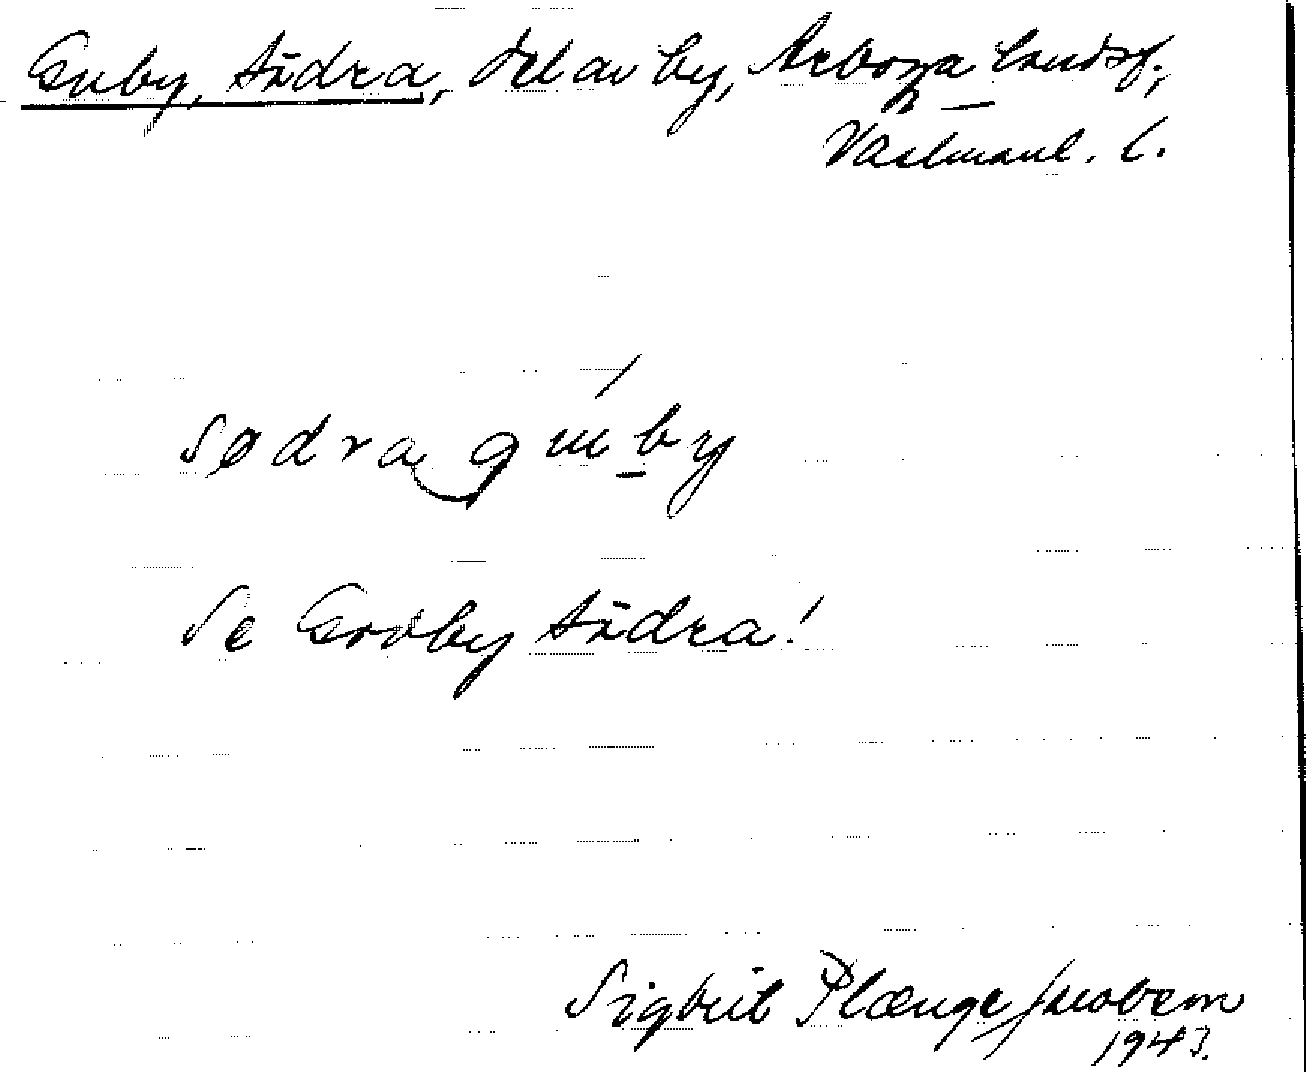 Gruby, Södra, del av by, Arboga landsf.,
Västmanl. l.
Södra gruby
Se Groby Södra!
Sigbrit Plænge Jacobson
1943.